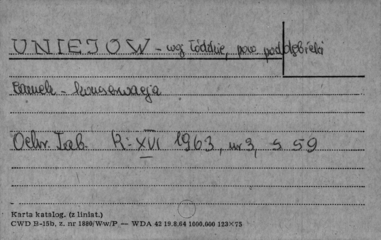 UNIEJÓW - woj. łódzkie, pow. poddębicki
Zamek - konserwacja
Ochr. Zab. R: XVI 1963, nr 3, s. 59
Karta katalog. (z liniat.)
CWD B-15b, z. nr 1880/Ww/P — WDA 42 19.8.64 1000,000 123×75